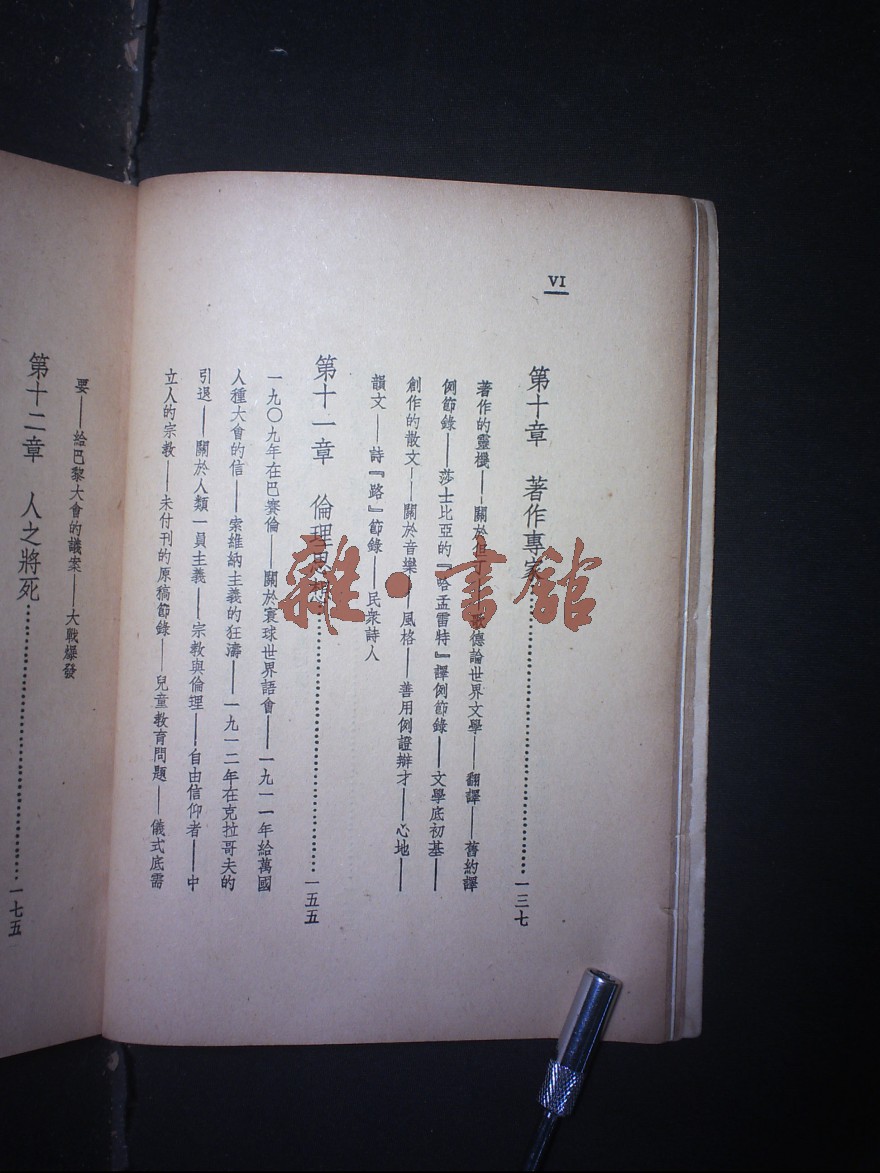 VI
第十章 著作專家…………一三七
著作的靈機——關於但丁——歌德論世界文學——翻譯——舊約譯
例節錄——莎士比亞的『哈孟雷特』譯例節錄——文學底初基——
創作的散文——關於音樂——風格——善用例證辯才——心地——
韻文——詩『路』節錄——民衆詩人
第十一章 倫理思想…………一五五
一九〇九年在巴賽倫——關於寰球世界語會——一九一一年給萬國
人種大會的信——索維納主義的狂濤——一九一二年在克拉哥夫的
引退——關於人類一員主義——宗教與倫理——自由信仰者——中
立人的宗教——未付刊的原稿節錄——兒童教育問題——儀式底需
要——給巴黎大會的議案——大戰爆發
第十二章 人之將死…………一七五
雜·書館